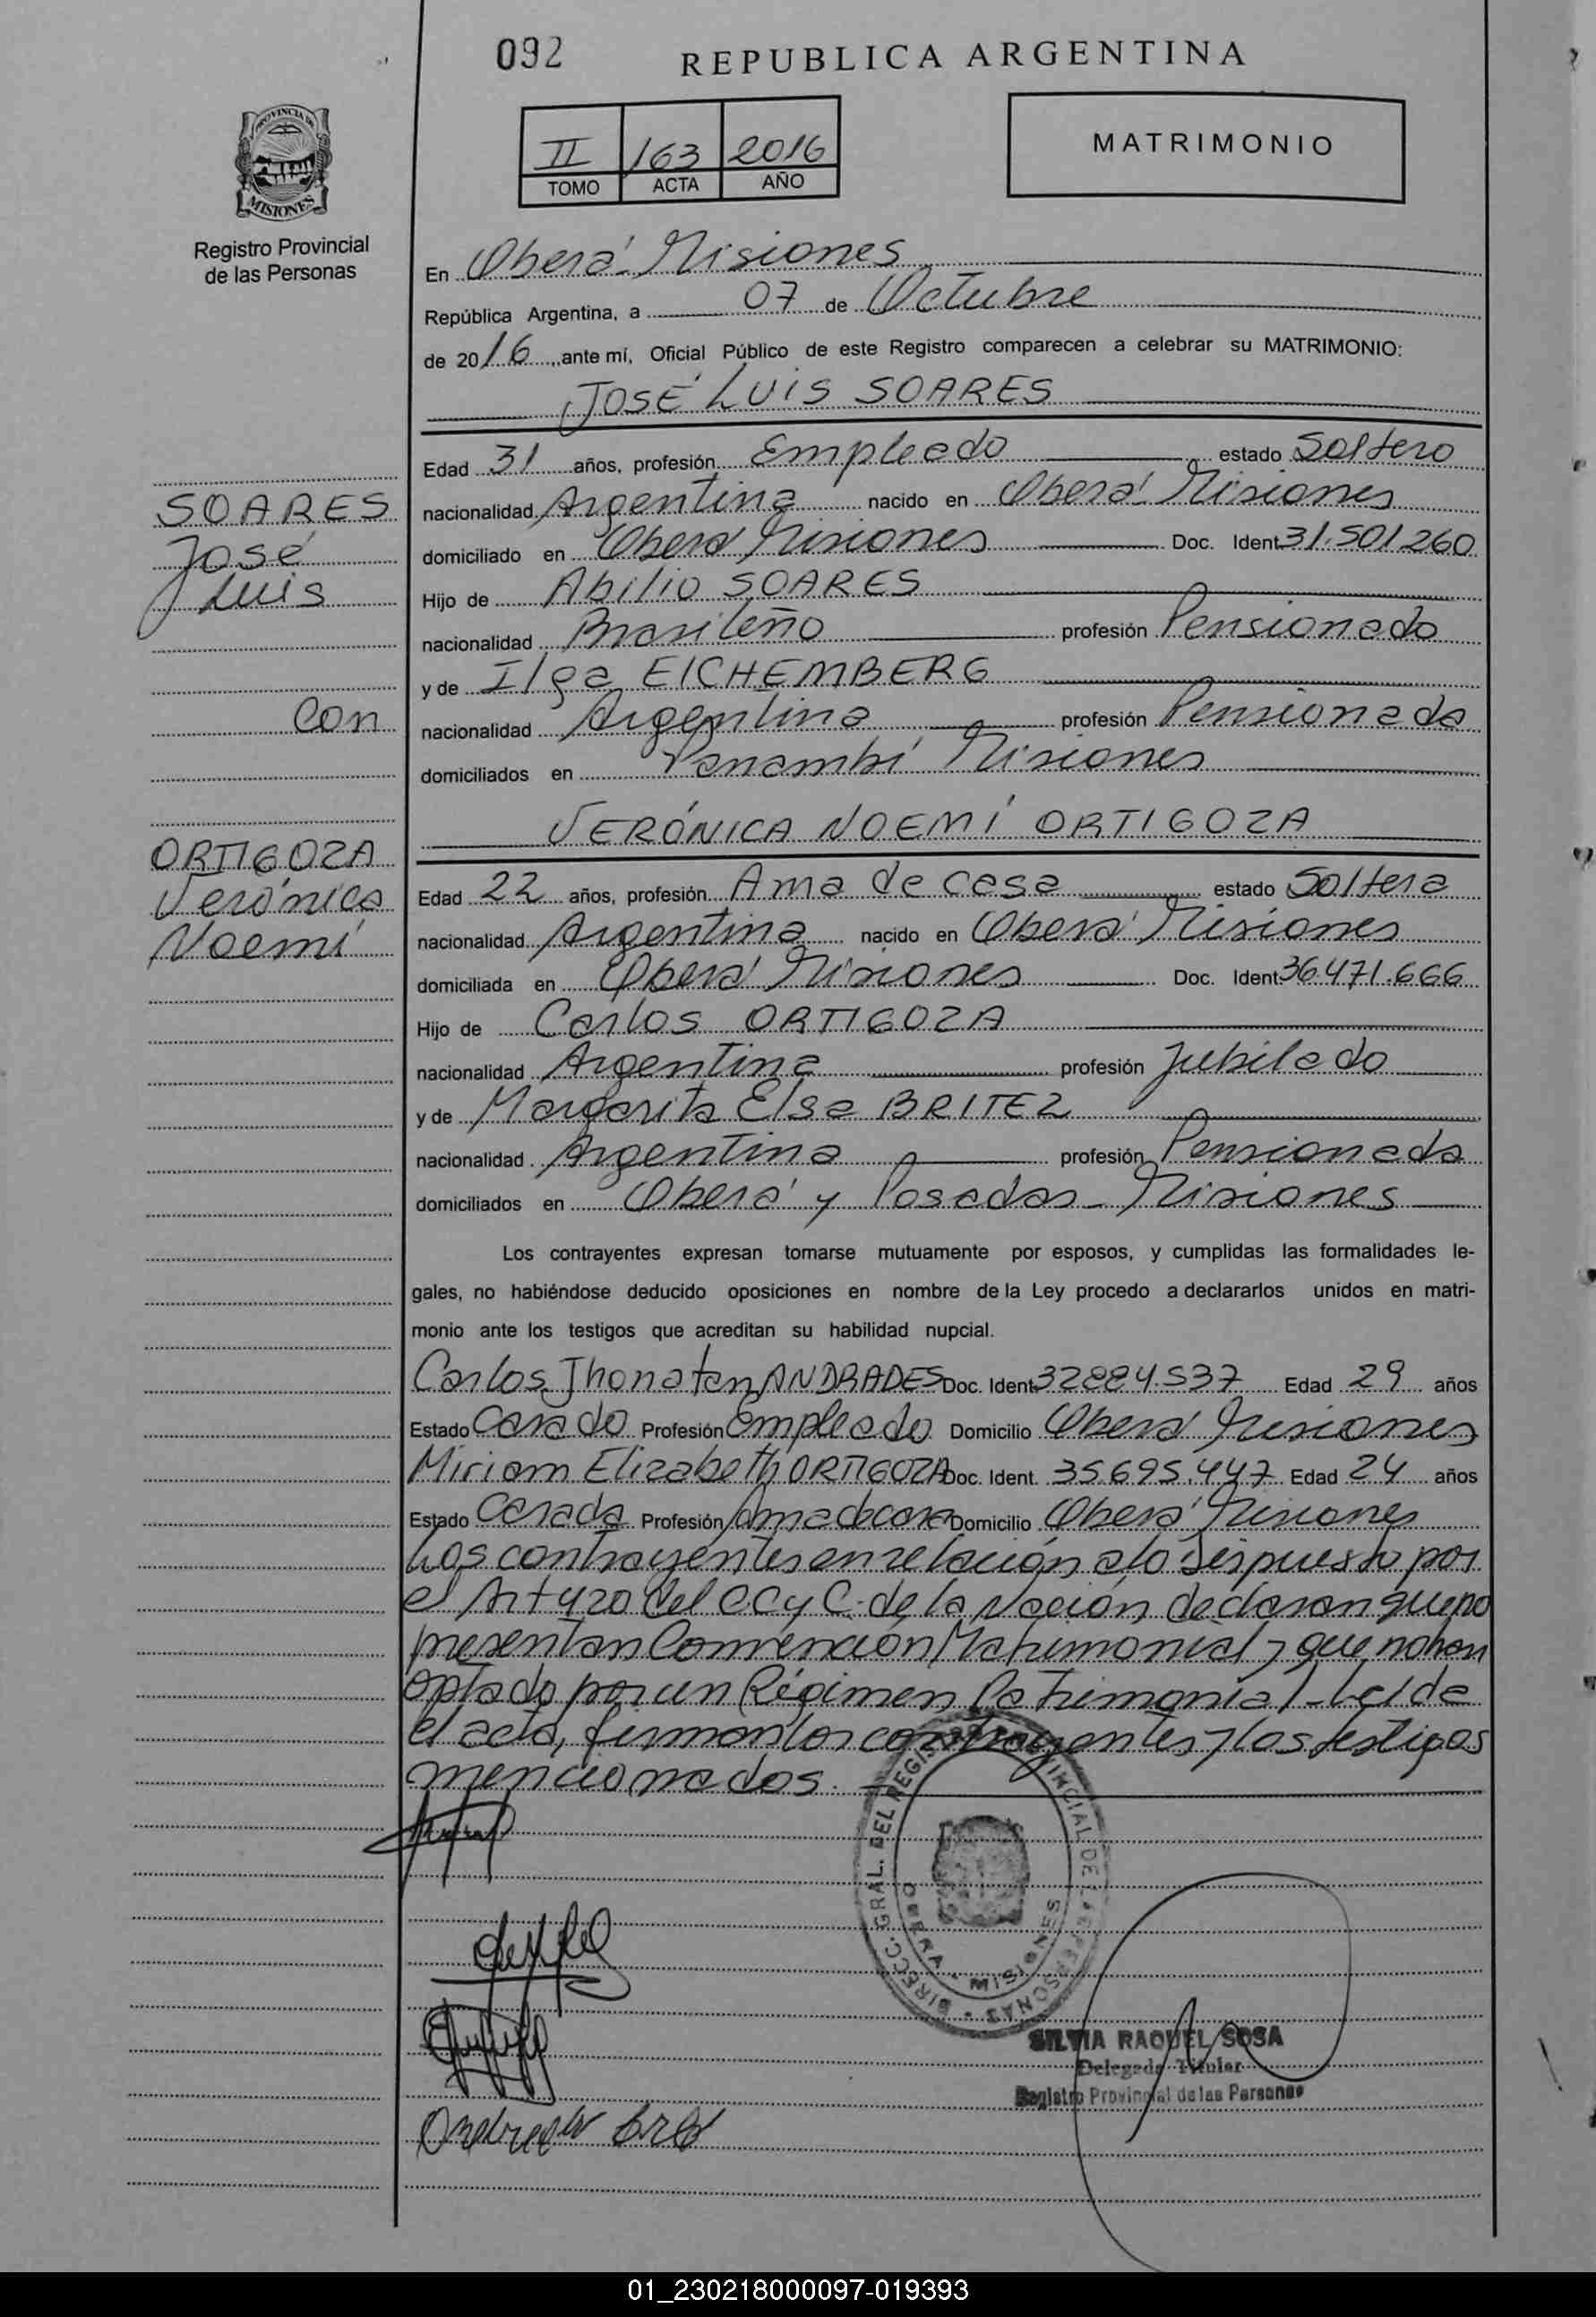 092
REPUBLICA ARGENTINA
PROVINCIA DE
MISIONES
Registro Provincial
de las Personas
II 163 2016
TOMO ACTA AÑO
MATRIMONIO
En Oberá - Misiones
República Argentina, a 07 de Octubre
de 2016, ante mí, Oficial Público de este Registro comparecen a celebrar su MATRIMONIO:
JOSÉ LUIS SOARES
Edad 31 años, profesión Empleado estado Soltero
nacionalidad Argentina nacido en Oberá Misiones
domiciliado en Oberá Misiones Doc. Ident 31.501.260
Hijo de Abilio SOARES
nacionalidad Brasileño profesión Pensionado
y de Ilga EICHEMBERG
nacionalidad Argentina profesión Pensionada
domiciliados en Panambí Misiones
SOARES
José
Luis
con
ORTIGOZA
Verónica
Noemí
VERÓNICA NOEMÍ ORTIGOZA
Edad 22 años, profesión Ama de casa estado Soltera
nacionalidad Argentina nacido en Oberá Misiones
domiciliada en Oberá Misiones Doc. Ident 36.471.666
Hijo de Carlos ORTIGOZA
nacionalidad Argentina profesión Jubilado
y de Margarita Elsa BRITEZ
nacionalidad Argentina profesión Pensionada
domiciliados en Oberá y Posadas - Misiones
Los contrayentes expresan tomarse mutuamente por esposos, y cumplidas las formalidades le-
gales, no habiéndose deducido oposiciones en nombre de la Ley procedo a declararlos unidos en matri-
monio ante los testigos que acreditan su habilidad nupcial.
Carlos Jhonatan ANDRADES Doc. Ident 32884.537 Edad 29 años
Estado Casado Profesión Empleado Domicilio Oberá Misiones
Miriam Elizabeth ORTIGOZA Doc. Ident. 35.695.447 Edad 24 años
Estado Casada Profesión Ama de casa Domicilio Oberá Misiones
Los contrayentes en relación a lo dispuesto por
el Art 420 del CC y C. de la Nación declaran que no
presentan Convención Matrimonial y que no han
optado por un Régimen Patrimonial - Leída
el acta, firman los contrayentes y los testigos
mencionados.
DIRECC. GRAL. DEL REGISTRO PROVINCIAL DE LAS PERSONAS
OBERA - MISIONES
SILVIA RAQUEL SOSA
Delegada Titular
Registro Provincial de las Personas
01_230218000097-019393